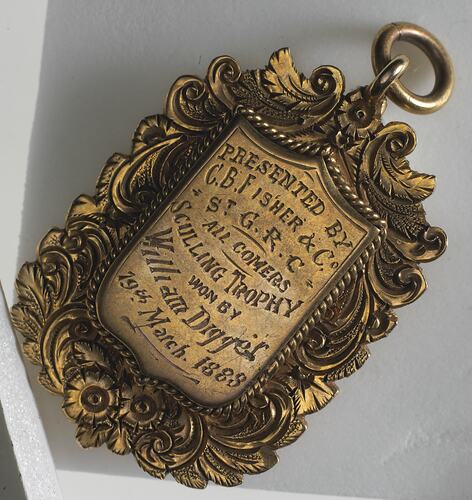 PRESENTED BY
C.B. FISHER & Co
ST. G. R. C
ALL COMERS
SCULLING TROPHY
WON BY
William Digges
19th March. 1883